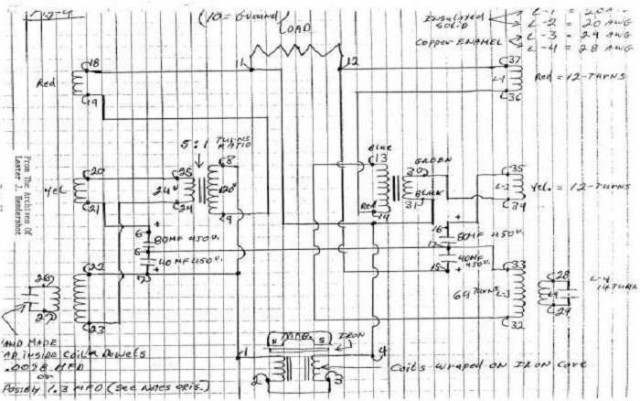 (10 = Ground)
LOAD
Insulated
Solid
L-1 = 20AWG
L-2 = 20 AWG
L-3 = 24 AWG
L-4 = 28 AWG
COPPER ENAMEL
18
Red
19
11
12
37
L-1
36
Red = 12-TURNS
5:1 TURNS
RATIO
20
Yel
21
25
24
8
9
BLUE
13
Red
14
GREEN
30
BLACK
31
35
L-2
34
Yel. = 12-TURNS
From The Archives Of
Lester J. Hendershot
6
80MF 450V.
40MF 450V.
+
+
16
80MF 450V.
40MF
450V.
15
+
22
23
26
27
33
L-3
32
69 TURNS
28
L-4
29
L-4
14 TURN
HAND MADE
CAP. INSIDE COIL & Dowels
.0098 MFD
OR
Possibly 1.3 MFD (See Notes orig.)
1
S
MAG.
S
IRON
4
2
3
Coils wrapped on Iron Core